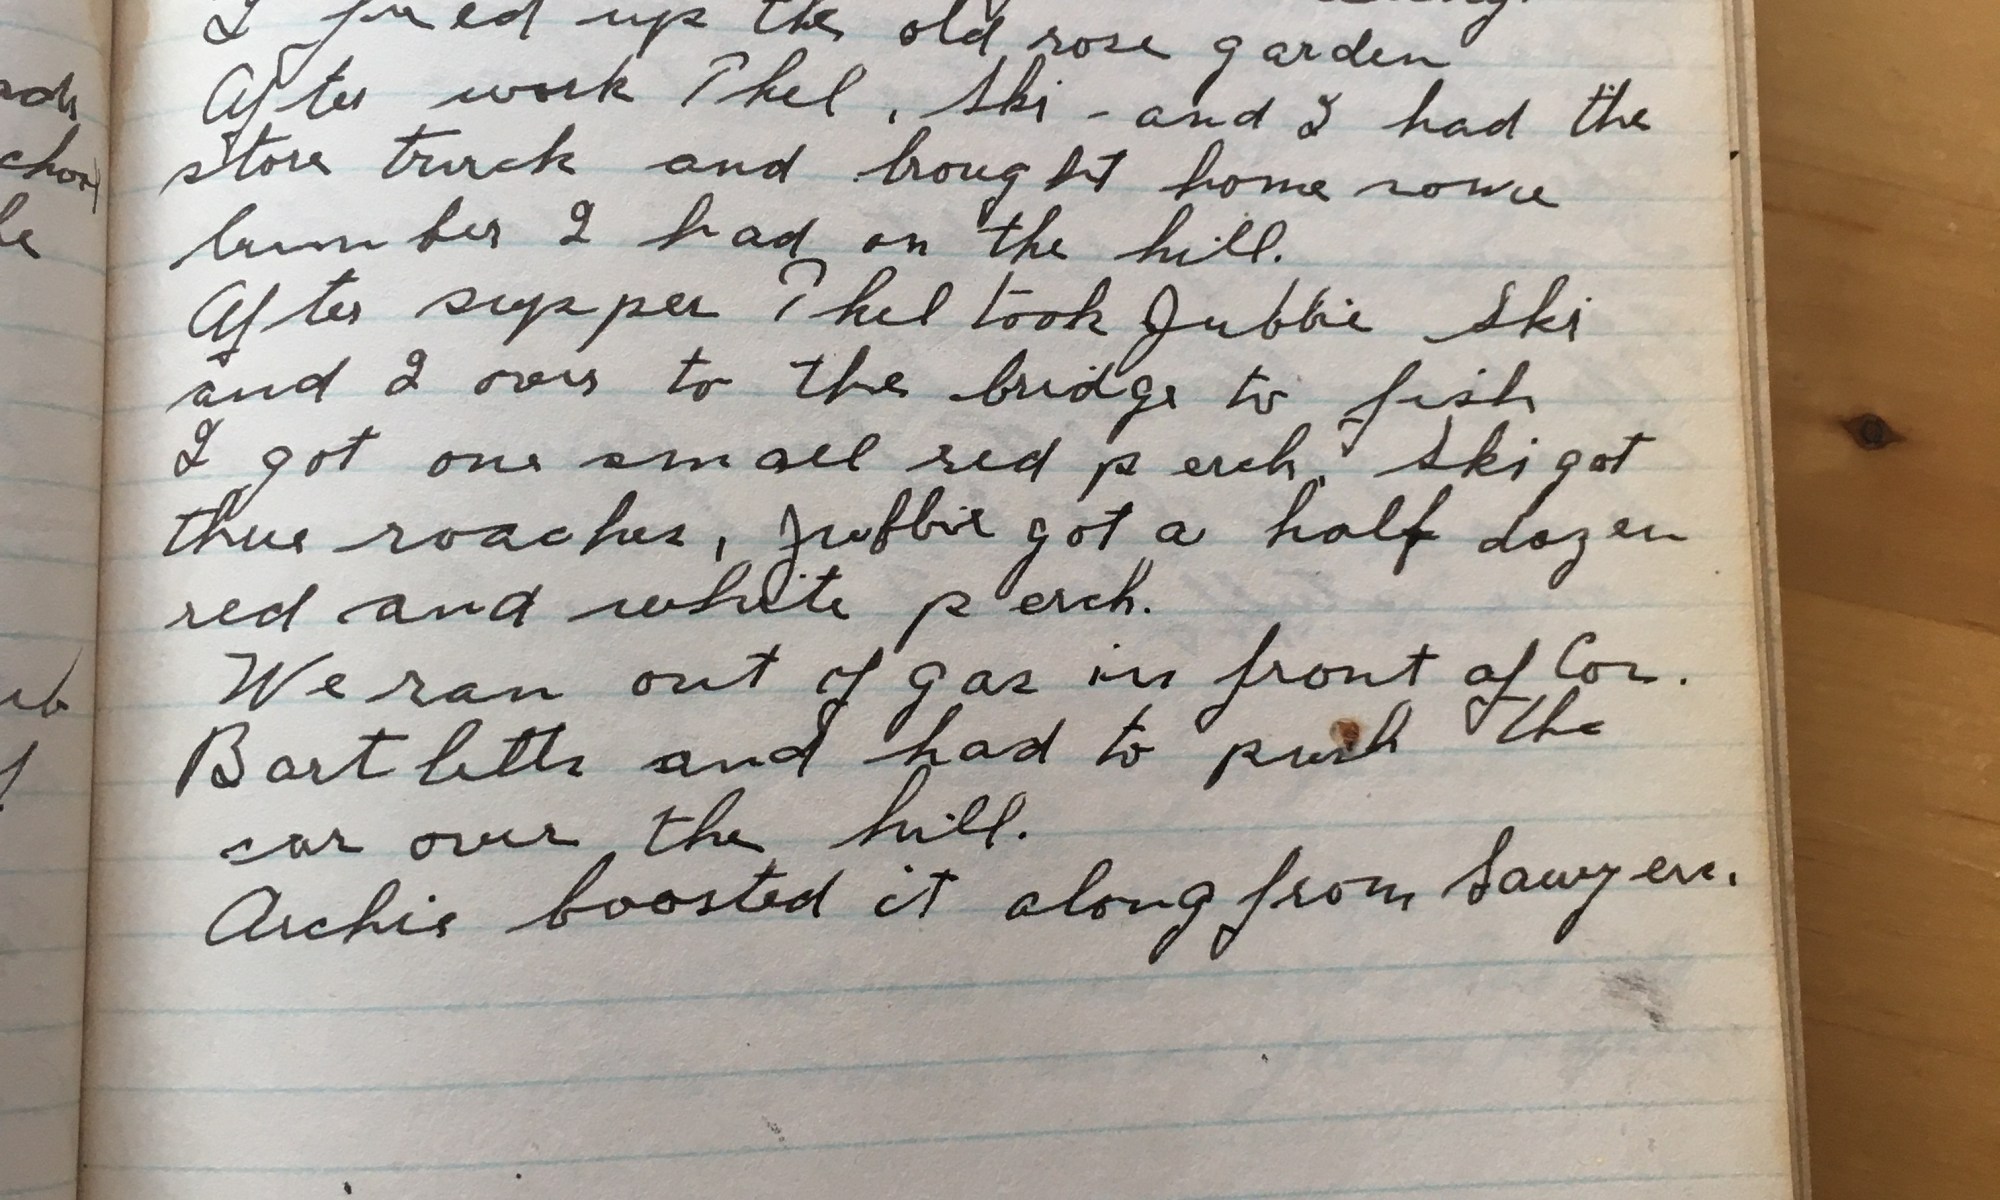 I fixed up the old rose garden
After work Thel, Ski - and I had the
store truck and brought home some
lumber I had on the hill.
After supper Thel took Jubbie Ski
and I over to the bridge to fish
I got one small red perch, Ski got
three roaches, Jubbie got a half dozen
red and white perch.
We ran out of gas in front of Con.
Bartletts and had to push the
car over the hill.
Archie boosted it along from Sawyers.